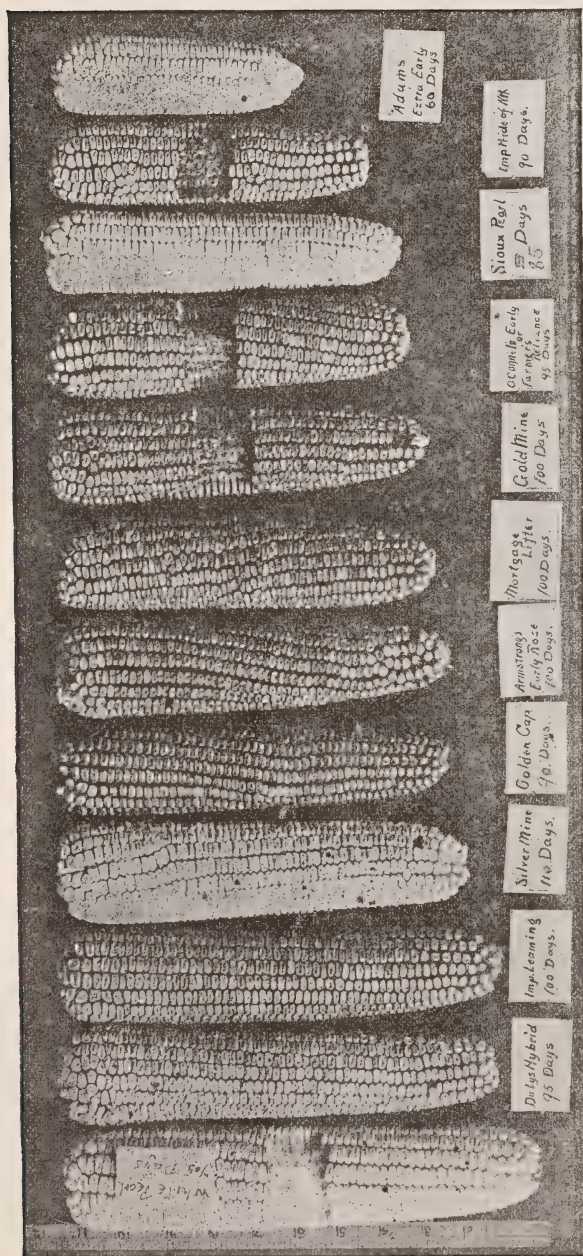 Adams
Extra Early
60 Days
Imp Hide of
90 Days.
Sioux Pearl
Days
85
Early
or
Farmers
Reliance
95 Days
Gold Mine
100 Days
Mortgage
Lifter
100 Days.
Armstrongs
Early Rose
100 Days.
Golden Cap
90 Days.
Silver Mine
110 Days.
Imp. Leaming
100 Days.
Dalys Hybrid
95 Days
White Pearl
Days